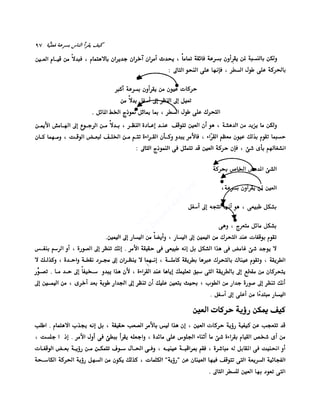 كيف يقرأ الناس بسرعة فعليّة ٩٧
ولكن بالنسبة لمن يقرأون بسرعة فائقة تماماً ، يحدث أمران آخران جديران بالاهتمام ، فبدلاً من قيام العين
بالحركة على طول السطر ، فإنها على النحو التالى :
حركات عيون من يقرأون بسرعة أكبر
تميل إلى النظر إلى أسفل بدلاً من
التحرك على طول السطر ، بما يماثل نموذج الخط المائل .
ولكن ما يزيد من الدهشة ، هو أن العين تتوقف عند إعادة النظر ، بدلاً من الرجوع إلى الهامش الأيمن
حسبما تقوم بذلك عيون معظم القرّاء ، فالأمر يبدو وكأن القراءة تتم من الخلف لبعض الوقت ، ومهما كان
انشغالهم بأى شئ ، فإن حركة العين قد تتمثل فى النموذج التالى :
الشئ المدهش الخاص بحركة
العين لمن يقرأون بسرعة ،
بشكل طبيعى ، هو أنها تتجه إلى أسفل
بشكل مائل متعرج ، وهى
تقوم بوقفات عند التحرك من اليمين إلى اليسار ، وأيضاً من اليسار إلى اليمين.
لا يوجد شئ غامض فى هذا الشكل بل إنه طبيعى فى حقيقة الأمر . إنك تنظر إلى الصورة ، أو الرسم بنفس
الطريقة ، وتقوم عيناك بالتحرك عبرها بطريقة كاملة ، إنهما لا ينظران إلى مجرد نقطة واحدة ، وكذلك لا
يتحركان من مقطع إلى بالطريقة التى سبق تعليمك إياها عند القراءة ، لأن هذا يبدو سخيفاً إلى حد ما . تصوّر
أنك تنظر إلى صورة جدار من الطوب ، بحيث يتعين عليك أن تنظر إلى الجدار طوبة بعد أخرى ، من اليمين إلى
اليسار مبتدئاً من أعلى إلى أسفل .
كيف يمكن رؤية حركات العين
قد تتعجب عن كيفية رؤية حركات العين ، إن هذا ليس بالأمر الصعب حقيقة ، بل إنه يجذب الاهتمام . اطلب
من أى شخص القيام بقراءة شئ ما أثناء الجلوس على مائدة ، واجعله يقرأ ببطئ فى أول الأمر . إذا جلست ،
أو انحنيت فى المقابل له مباشرة ، فقم بمراقبة عينيه ، وفى الحال سوف تتمكن من رؤية بعض الوقفات
الفجائية السريعة التى تتوقف فيها العينان عن "رؤية" الكلمات ، كذلك يكون من السهل رؤية الحركة الكاسحة
التى تعود بها العين للسطر التالى .